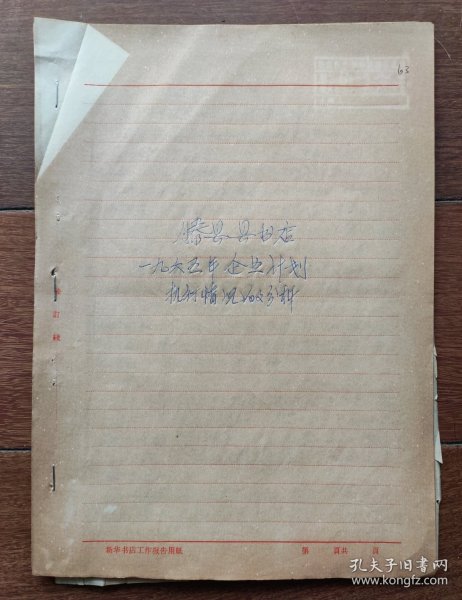 63
滕县县书店
一九六五年企业计划
执行情况的资料
装订线
新华书店工作报告用纸
第 頁共 頁
孔夫子旧书网
www.kongfz.com